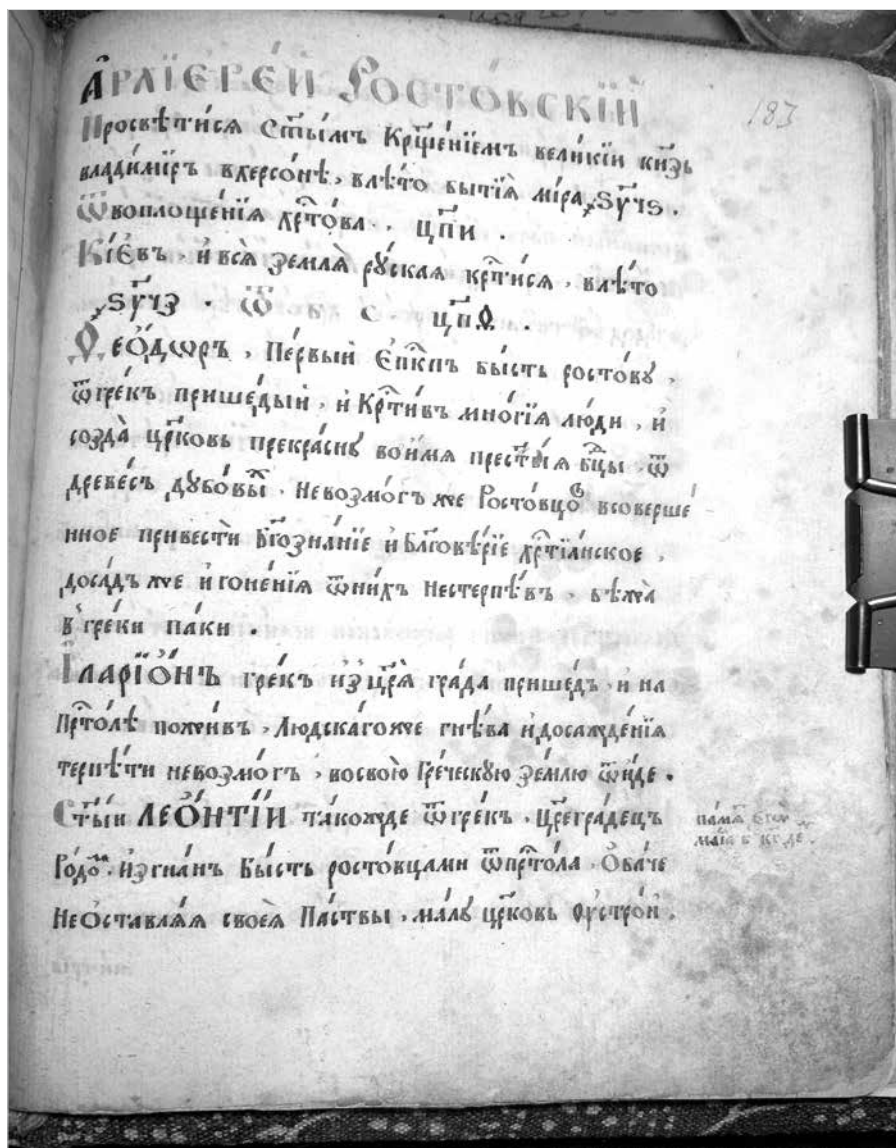 А҆РХЇЄРЕ́И РОСТО́ВСКЇИ
183
Просвѣти́ся Ст҃ы́мъ Кр҃ще́нїемъ вели́кїи кн҃зь
влади́мїръ вхерсо́нѣ, влѣ́то бытїѧ̀ мі́ра ҂Ѕ҃уч҃ѕ.
Ѿвоплоще́нїя хр҇то́ва, ц҃пи.
Кі́евъ, и҆ всѧ̀ землѧ̀ ру́ская кр҇ти́ся, влѣ́то
҂Ѕ҃учз. Ѿ с. ц҃пѳ.
Ѳео́дѡръ, Пе́рвый Єп҇кпъ бы́сть росто́ву,
ѿгре́къ прише́дыи, и҆ Кр҇ти́въ мно́гїя лю́ди, и҆
созда̀ цр҃ковь прекра́сну во и҆́мя прест҃ы́я бц҃ы ѿ
древе́съ дубо́вы́хъ. Невозмо́гъ же Росто́вцовъ всоверше́
нное привести́ Бг҃озна́нїе и҆ Бл҃гове́рїе хр҇тїа́нское,
доса́дъ же и҆ гоне́нїя ѿни́хъ Нестерпѣ́въ, бѣжа̀
в гре́ки па́ки.
Іларїо́нъ гре́къ и҆з цр҃я̀ гра́да прише́дъ, и҆ на
Пр҇то́лѣ пожи́въ, Людска́гоже гнѣ́ва и҆ досажде́нїя
терпѣ́ти невозмо́гъ, восвою̀ Гре́ческую зе́млю ѿи́де.
Ст҃ы́и ЛЕО́НТЇИ та́кожде ѿгре́къ, Цр҃егра́децъ
Ро́домъ, И҆згна́нъ Бы́сть росто́вцами ѿпр҇то́ла. Оба́че
Не оставля́я своея̀ Па́ствы, ма́лу цр҃ковь ѹ҆стро́и,
па́мѧ҇т
ма́їа